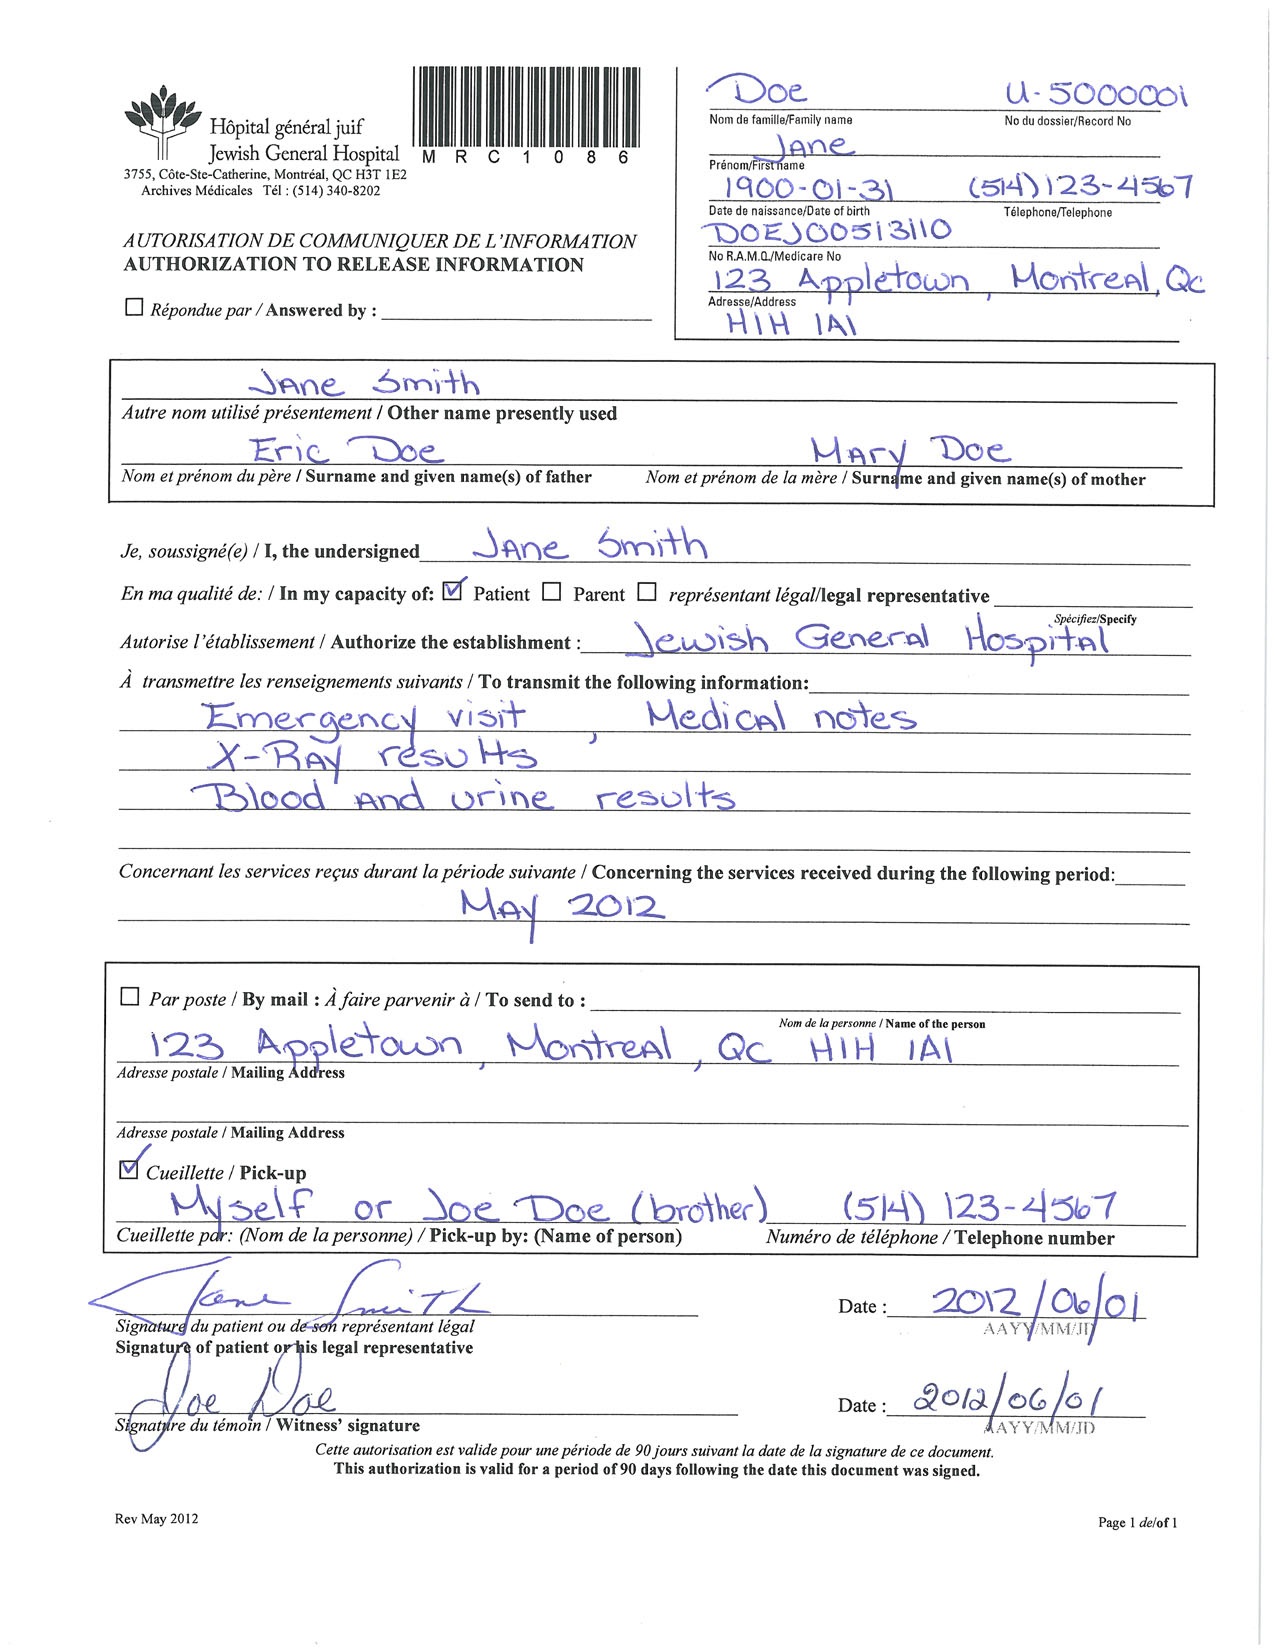 Hôpital général juif
Jewish General Hospital
3755, Côte-Ste-Catherine, Montréal, QC H3T 1E2
Archives Médicales Tél : (514) 340-8202
M R C 1 0 8 6
AUTORISATION DE COMMUNIQUER DE L'INFORMATION
AUTHORIZATION TO RELEASE INFORMATION
☐ Répondue par / Answered by :
Doe U-5000001
Nom de famille/Family name No du dossier/Record No
Jane
Prénom/First name
1900-01-31 (514) 123-4567
Date de naissance/Date of birth Télephone/Telephone
DOEJ00513110
No R.A.M.Q./Medicare No
123 Appletown, Montreal, Qc
Adresse/Address
H1H 1A1
Jane Smith
Autre nom utilisé présentement / Other name presently used
Eric Doe Mary Doe
Nom et prénom du père / Surname and given name(s) of father Nom et prénom de la mère / Surname and given name(s) of mother
Je, soussigné(e) / I, the undersigned Jane Smith
En ma qualité de: / In my capacity of: ☑ Patient ☐ Parent ☐ représentant légal/legal representative
Spécifiez/Specify
Autorise l'établissement / Authorize the establishment : Jewish General Hospital
À transmettre les renseignements suivants / To transmit the following information:
Emergency visit, Medical notes
X-Ray results
Blood and urine results
Concernant les services reçus durant la période suivante / Concerning the services received during the following period:
May 2012
☐ Par poste / By mail : À faire parvenir à / To send to :
Nom de la personne / Name of the person
123 Appletown, Montreal, Qc H1H 1A1
Adresse postale / Mailing Address
Adresse postale / Mailing Address
☑ Cueillette / Pick-up
Myself or Joe Doe (brother) (514) 123-4567
Cueillette par: (Nom de la personne) / Pick-up by: (Name of person) Numéro de téléphone / Telephone number
Jane Smith Date : 2012/06/01
Signature du patient ou de son représentant légal AAYY/MM/JD
Signature of patient or his legal representative
Joe Doe Date : 2012/06/01
Signature du témoin / Witness' signature AAYY/MM/JD
Cette autorisation est valide pour une période de 90 jours suivant la date de la signature de ce document.
This authorization is valid for a period of 90 days following the date this document was signed.
Rev May 2012 Page 1 de/of 1